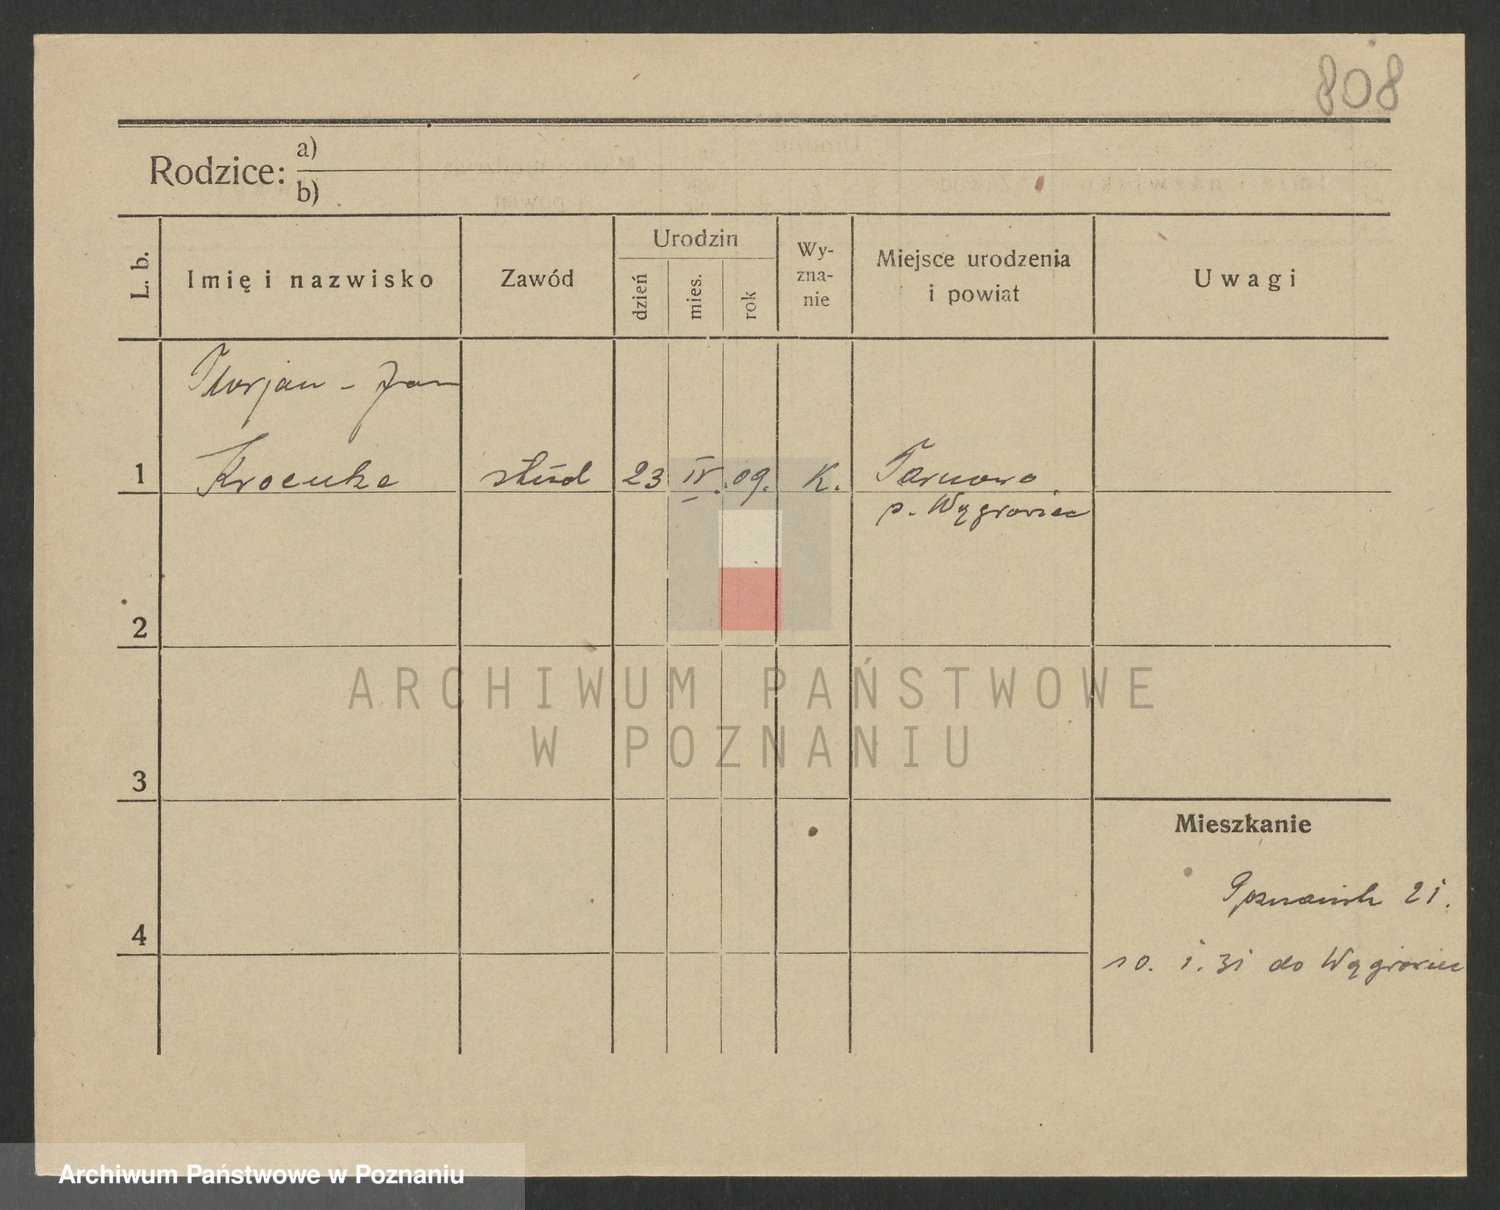 808
Rodzice: a)
b)
L. b.
Imię i nazwisko
Zawód
Urodzin
dzień
mies.
rok
Wy-
zna-
nie
Miejsce urodzenia
i powiat
Uwagi
Florjan - Jan
1 Kroenke stud 23 IV. 09. K. Tarnowo
p. Wągrowiec
2
ARCHIWUM PAŃSTWOWE
W POZNANIU
3
Mieszkanie
21.
4
10. 1. 31 do Wągrowiec
Archiwum Państwowe w Poznaniu